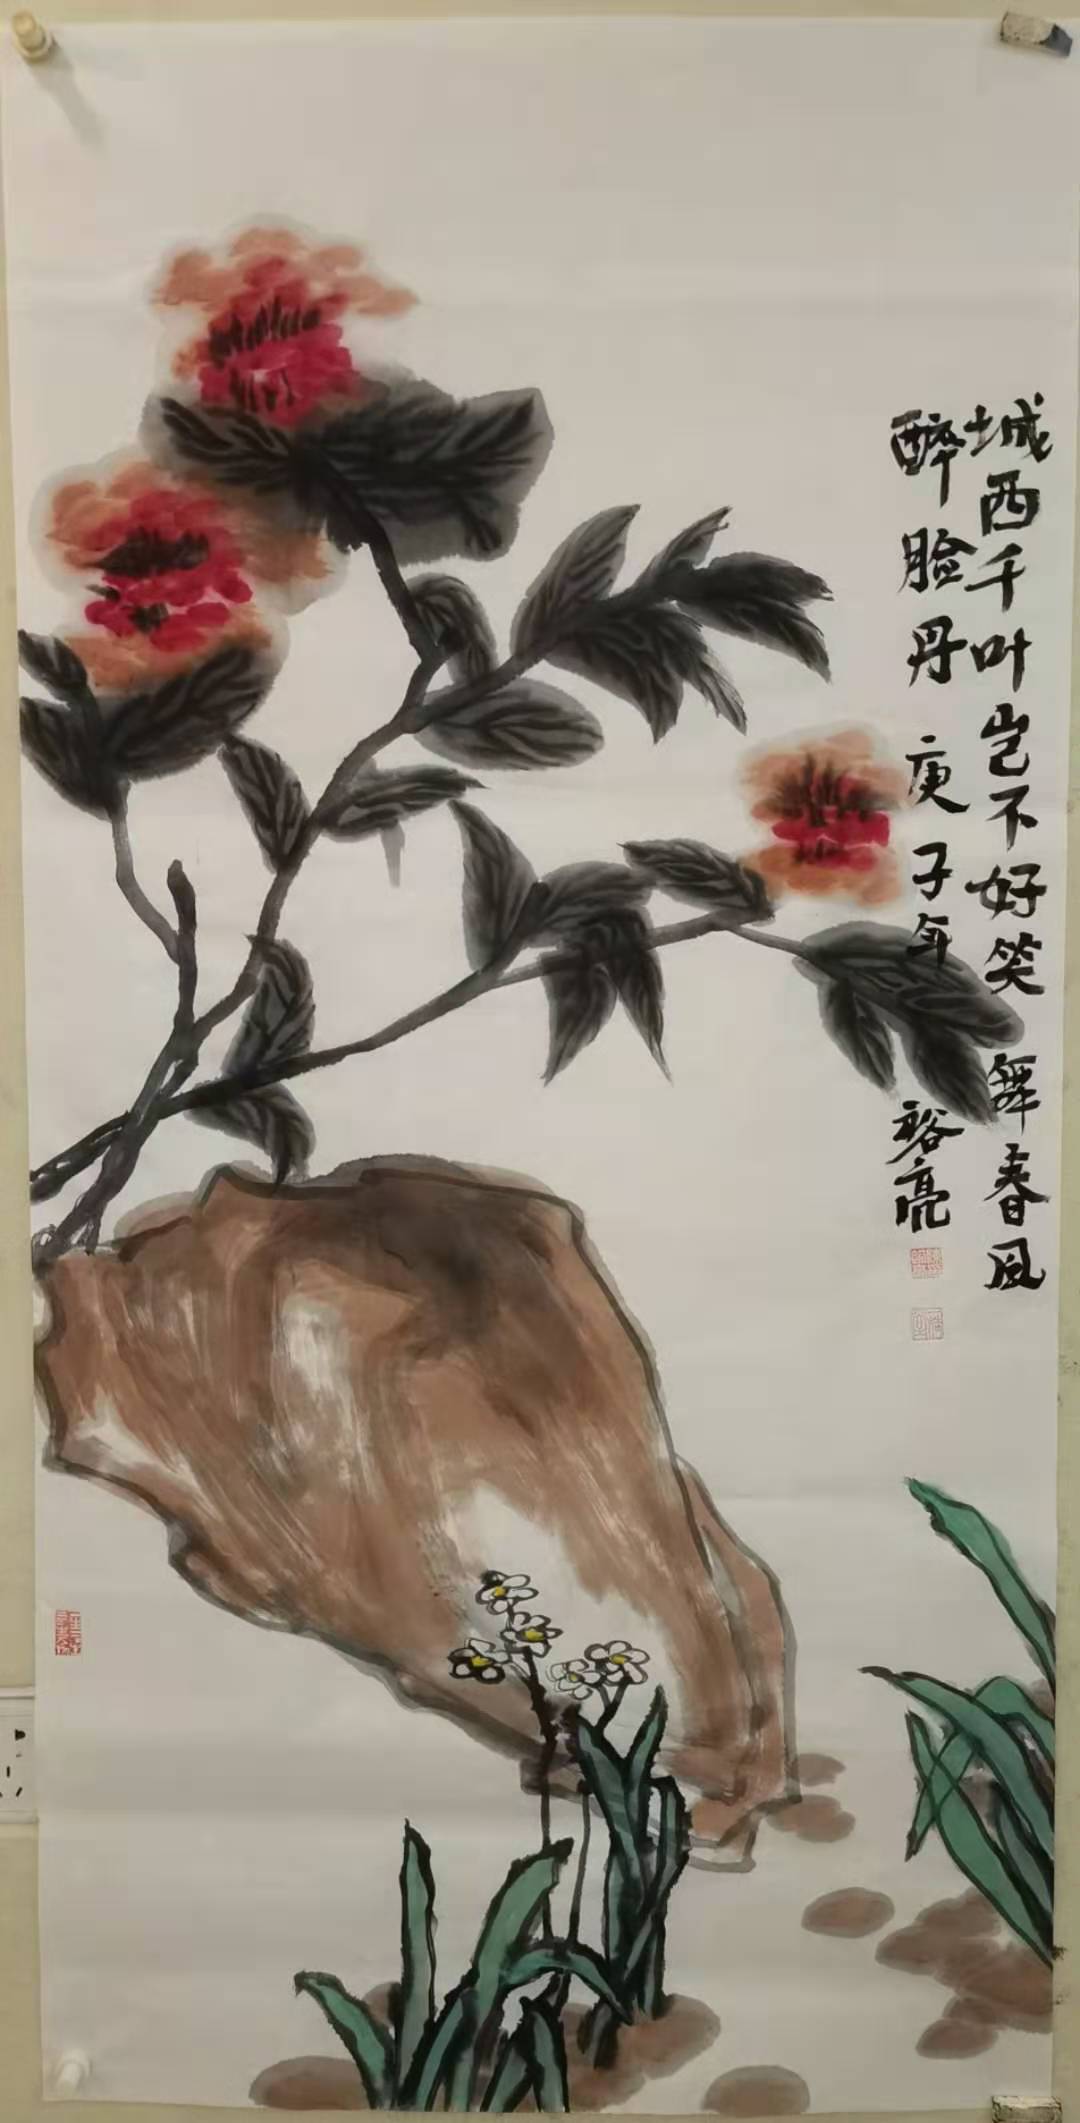 城西千叶岂不好笑舞春风
醉脸丹庚子年裕亮